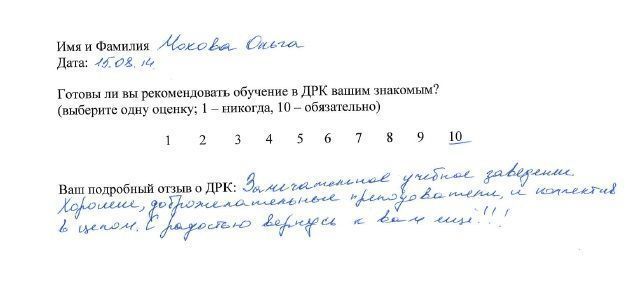 Имя и Фамилия Мохова Ольга
Дата: 15.08.14
Готовы ли вы рекомендовать обучение в ДРК вашим знакомым?
(выберите одну оценку; 1 – никогда, 10 – обязательно)
1 2 3 4 5 6 7 8 9 10
Ваш подробный отзыв о ДРК: Замечательное учебное заведение.
Хорошие, доброжелательные преподователи, и коллектив
в целом. С радостью вернусь к вам ещё!!!